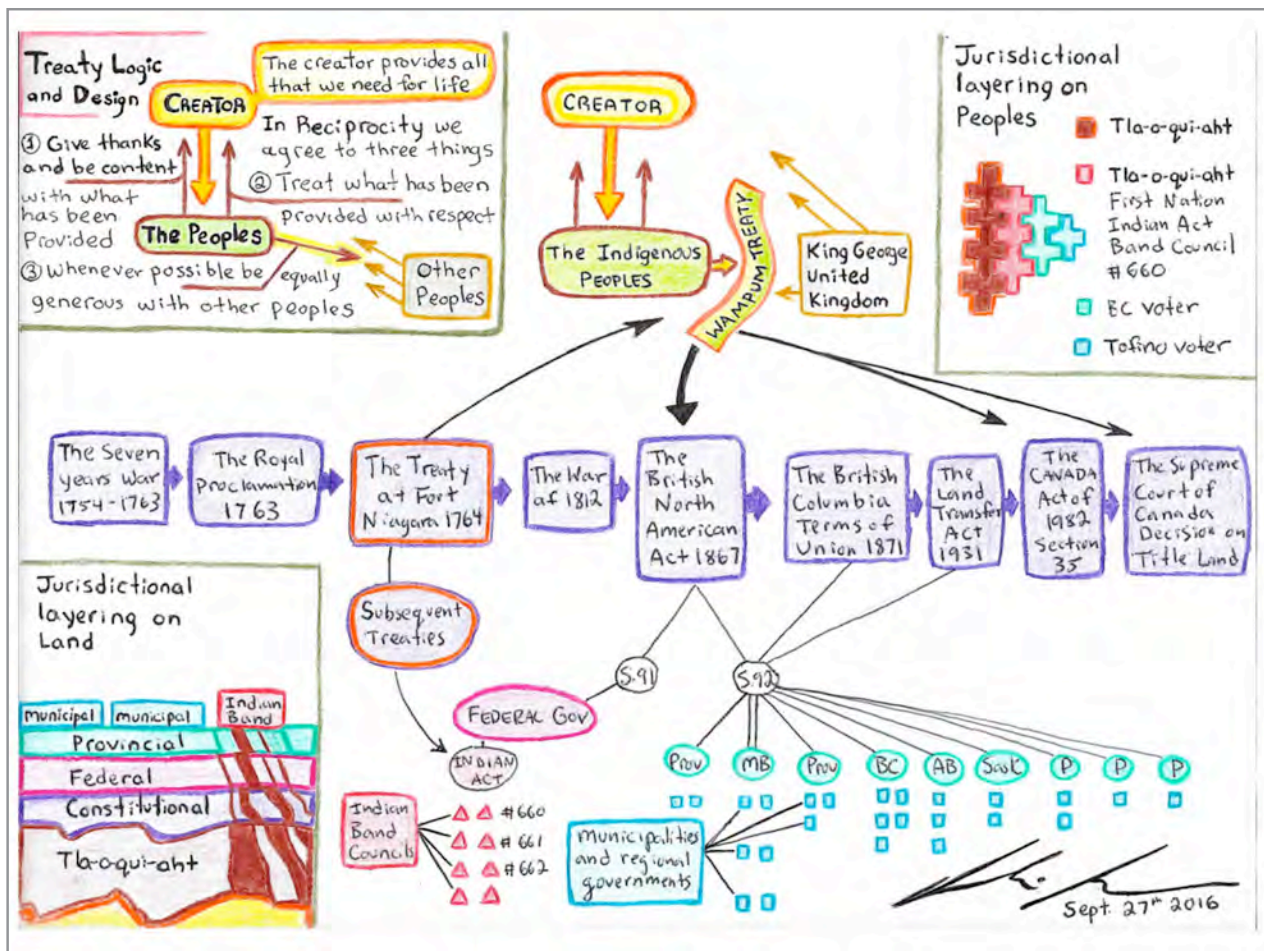 Treaty Logic
and Design
CREATOR
The creator provides all
that we need for life
① Give thanks
and be content
with what
has been
Provided
In Reciprocity we
agree to three things
② Treat what has been
provided with respect
The Peoples
③ Whenever possible be equally
generous with other peoples
Other
Peoples
CREATOR
The Indigenous
PEOPLES
WAMPUM TREATY
King George
United
Kingdom
Jurisdictional
layering on
Peoples
Tla-o-qui-aht
Tla-o-qui-aht
First Nation
Indian Act
Band Council
#660
BC voter
Tofino voter
The Seven
years War
1754-1763
The Royal
Proclamation
1763
The Treaty
at Fort
Niagara 1764
The War
of 1812
The
British
North
American
Act 1867
The British
Columbia
Terms of
Union 1871
The
Land
Transfer
Act
1931
The
CANADA
Act of
1982
Section
35
The Supreme
Court of
Canada
Decision on
Title Land
Subsequent
Treaties
S.91
S.92
FEDERAL GOV
INDIAN
ACT
Prov
MB
Prov
BC
AB
Sask
P
P
P
Indian
Band
Councils
#660
#661
#662
municipalities
and regional
governments
Jurisdictional
layering on
Land
municipal
municipal
Indian
Band
Provincial
Federal
Constitutional
Tla-o-qui-aht
Sept. 27th 2016